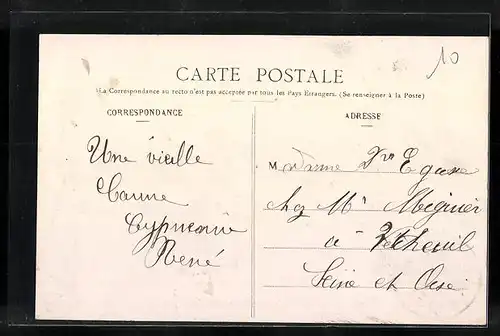 10
CARTE POSTALE
(La Correspondance au recto n'est pas acceptée par tous les Pays Etrangers. (Se renseigner à la Poste)
CORRESPONDANCE
ADRESSE
Une vieille
René
Madame
chez Mr
à Vetheuil
Seine et Oise